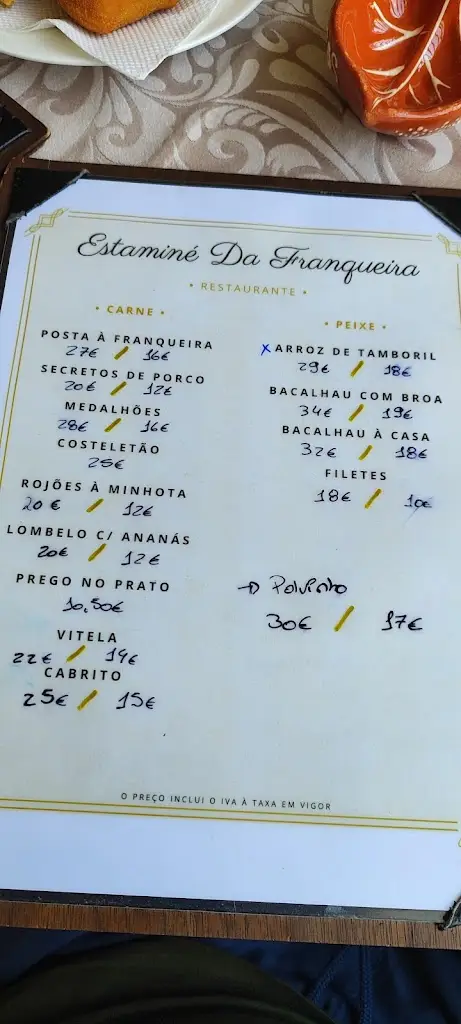 Estaminé Da Franqueira
• RESTAURANTE •
• CARNE •
POSTA À FRANQUEIRA
27€ / 16€
SECRETOS DE PORCO
20€ / 12€
MEDALHÕES
28€ / 16€
COSTELETÃO
25€
ROJÕES À MINHOTA
20€ / 12€
LOMBELO C/ ANANÁS
20€ / 12€
PREGO NO PRATO
10,50€
VITELA
22€ / 14€
CABRITO
25€ / 15€
• PEIXE •
X ARROZ DE TAMBORIL
29€ / 18€
BACALHAU COM BROA
34€ / 19€
BACALHAU À CASA
32€ / 18€
FILETES
18€ / 10€
→ Polvinho
30€ / 17€
O PREÇO INCLUI O IVA À TAXA EM VIGOR